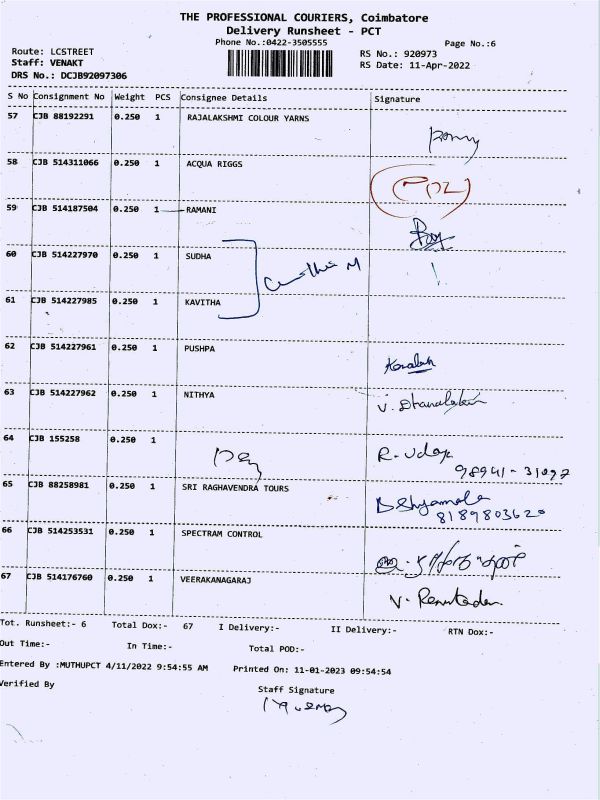 THE PROFESSIONAL COURIERS, Coimbatore
Delivery Runsheet - PCT
Phone No.:0422-3505555
Page No.:6
Route: LCSTREET
RS No.: 920973
Staff: VENAKT
RS Date: 11-Apr-2022
DRS No.: DCJB92097306
S No Consignment No Weight PCS Consignee Details Signature
57 CJB 88192291 0.250 1 RAJALAKSHMI COLOUR YARNS
58 CJB 514311066 0.250 1 ACQUA RIGGS
59 CJB 514187504 0.250 1 RAMANI
60 CJB 514227970 0.250 1 SUDHA
61 CJB 514227985 0.250 1 KAVITHA
62 CJB 514227961 0.250 1 PUSHPA
63 CJB 514227962 0.250 1 NITHYA
64 CJB 155258 0.250 1
R. Udaya
98941-31092
65 CJB 88258981 0.250 1 SRI RAGHAVENDRA TOURS
B Shyamala
8189803620
66 CJB 514253531 0.250 1 SPECTRAM CONTROL
67 CJB 514176760 0.250 1 VEERAKANAGARAJ
Tot. Runsheet:- 6 Total Dox:- 67 I Delivery:- II Delivery:- RTN Dox:-
Out Time:- In Time:- Total POD:-
Entered By :MUTHUPCT 4/11/2022 9:54:55 AM Printed On: 11-01-2023 09:54:54
Verified By
Staff Signature